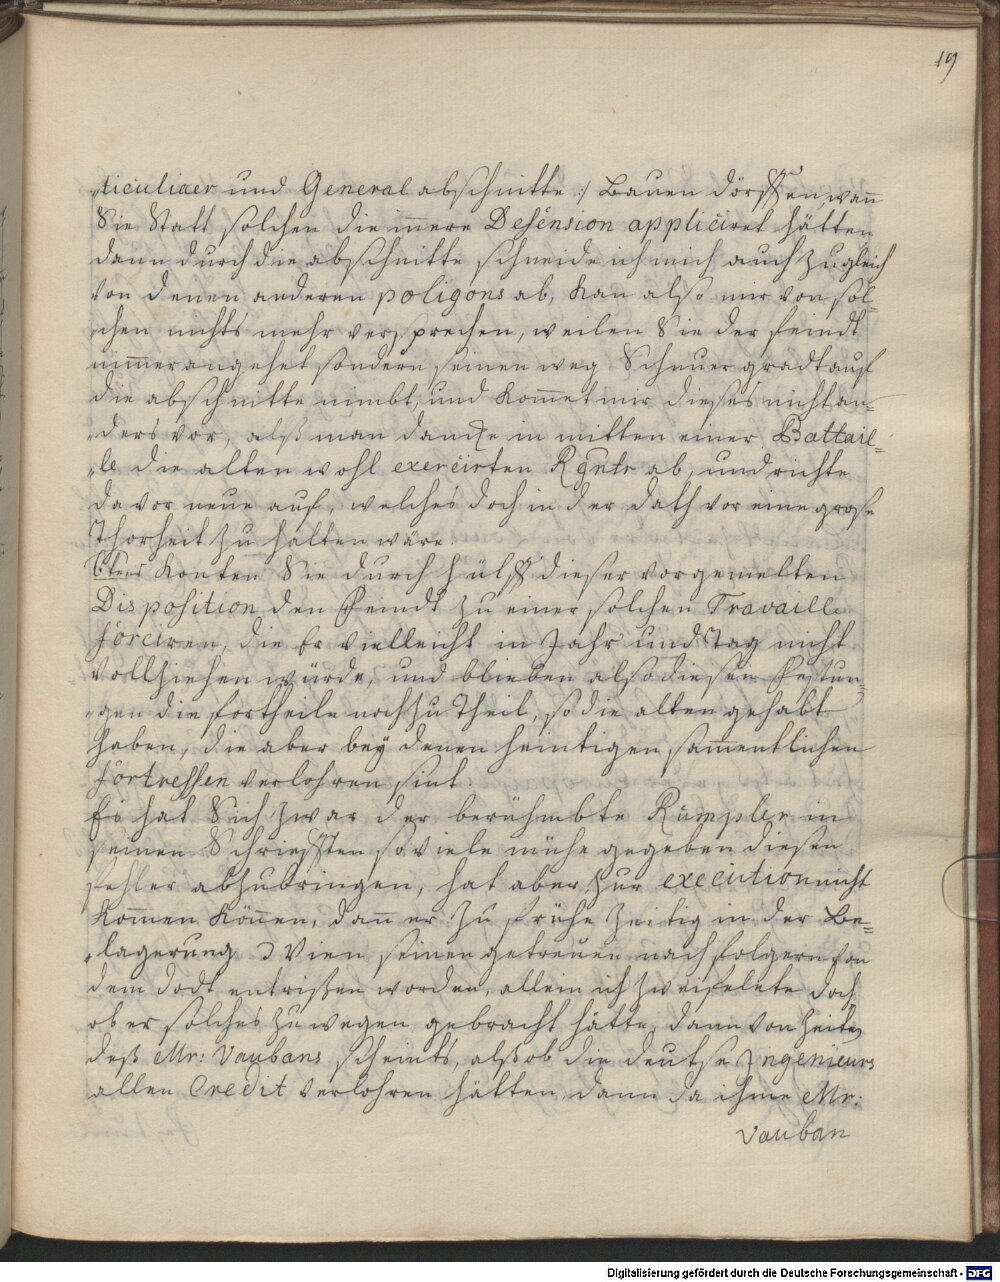 19
„ticulier und General abschnitte :/ Bauen dörffen wann
Sie Statt solchen die innere Defension appliciret hätten
dann durch die abschnitte schneide ich mich auch zugleich
von denen anderen poligons ab, Kan also mir von sol„
„chen nichts mehr versprechen, weilen Sie der feindt
nimmer angehet sondern seinen weg Schnuer gradt auf
die abschnitte nimbt, und kommet mir dieses nicht an„
„ders vor, alß man danckte in mitten einer Battail„
„le die alten wohl exercirten Rgntr ab, und richte
davor neue auf, welches doch in der dath vor eine grose
Thorheit zu halten wäre.
6tens Konten Sie durch hülff dieser vorgemelten
Disposition den Feindt zu einer solchen Travaille
forciren, die Er vielleicht in Jahr und Tag nicht
vollziehen würde, und blieben also diesen Festun„
„gen die fortheile noch zu Theil, so die alten gehabt
haben, die aber bey denen heintigen sammentlichen
fortressen verlohren sint.
Es hat Sich zwar der berühmbte Rümpler in
seinen Schriefften so viele mühe gegeben diesen
fehler abzubringen, hat aber zur execution nicht
kommen können, dann er zu frühe zeitig in der Be„
„lagerung Wien seinen getreuen nachfolgern von
dem dodt entrißen worden, allein ich zweifelete doch
ob er solches zu wegen gebracht hätte, dann von Zeiten
deß Mr: Vaubans scheints, alß ob die deutse Ingenieurs
allen Credit verlohren hätten, dann da ihme Mr:
Vauban
Digitalisierung gefördert durch die Deutsche Forschungsgemeinschaft - DFG